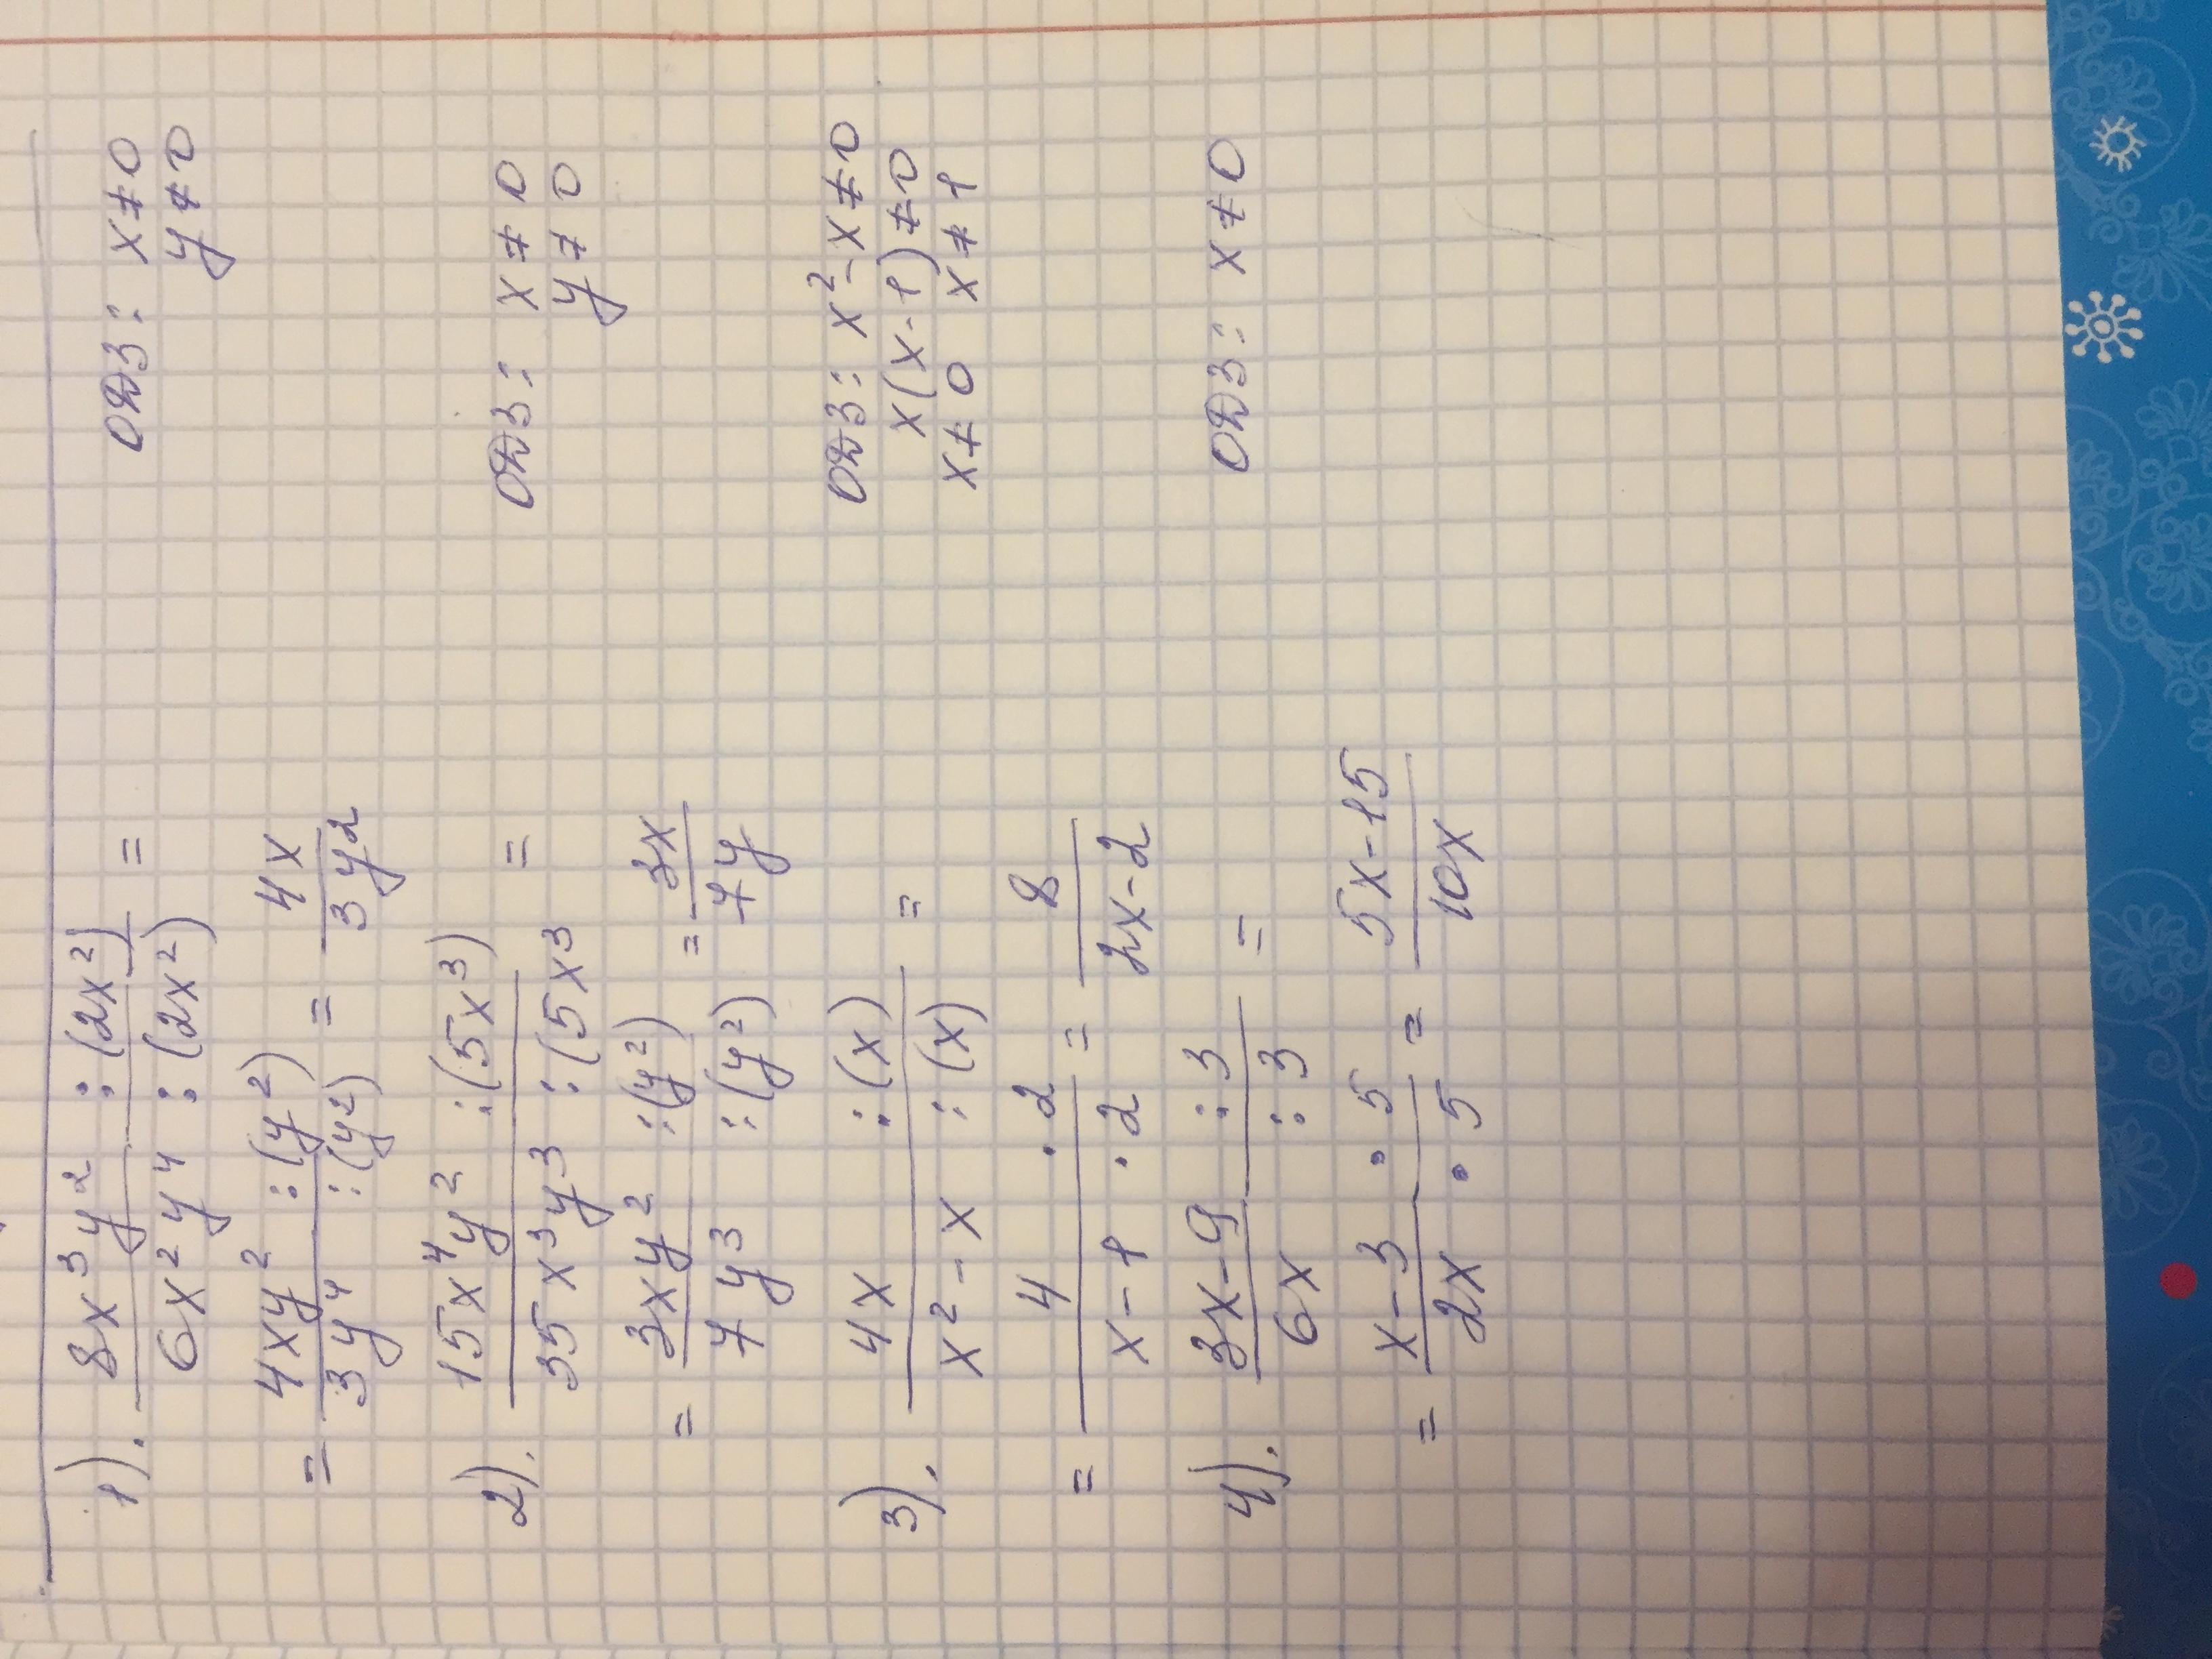 1). 8x³y² : (2x²) / 6x²y⁴ : (2x²) = ОДЗ: x≠0
y≠0
= 4xy² : (y²) / 3y⁴ : (y²) = 4x / 3y²
2). 15x⁴y² : (5x³) / 35x³y³ : (5x³ = ОДЗ: x≠0
y≠0
= 3xy² : (y²) / 7y³ : (y²) = 3x / 7y
3). 4x : (x) / x²-x : (x) = ОДЗ: x²-x≠0
x(x-1)≠0
x≠0 x≠1
= 4 · 2 / x-1 · 2 = 8 / 2x-2
4). 3x-9 : 3 / 6x : 3 = ОДЗ: x≠0
= x-3 · 5 / 2x · 5 = 5x-15 / 10x